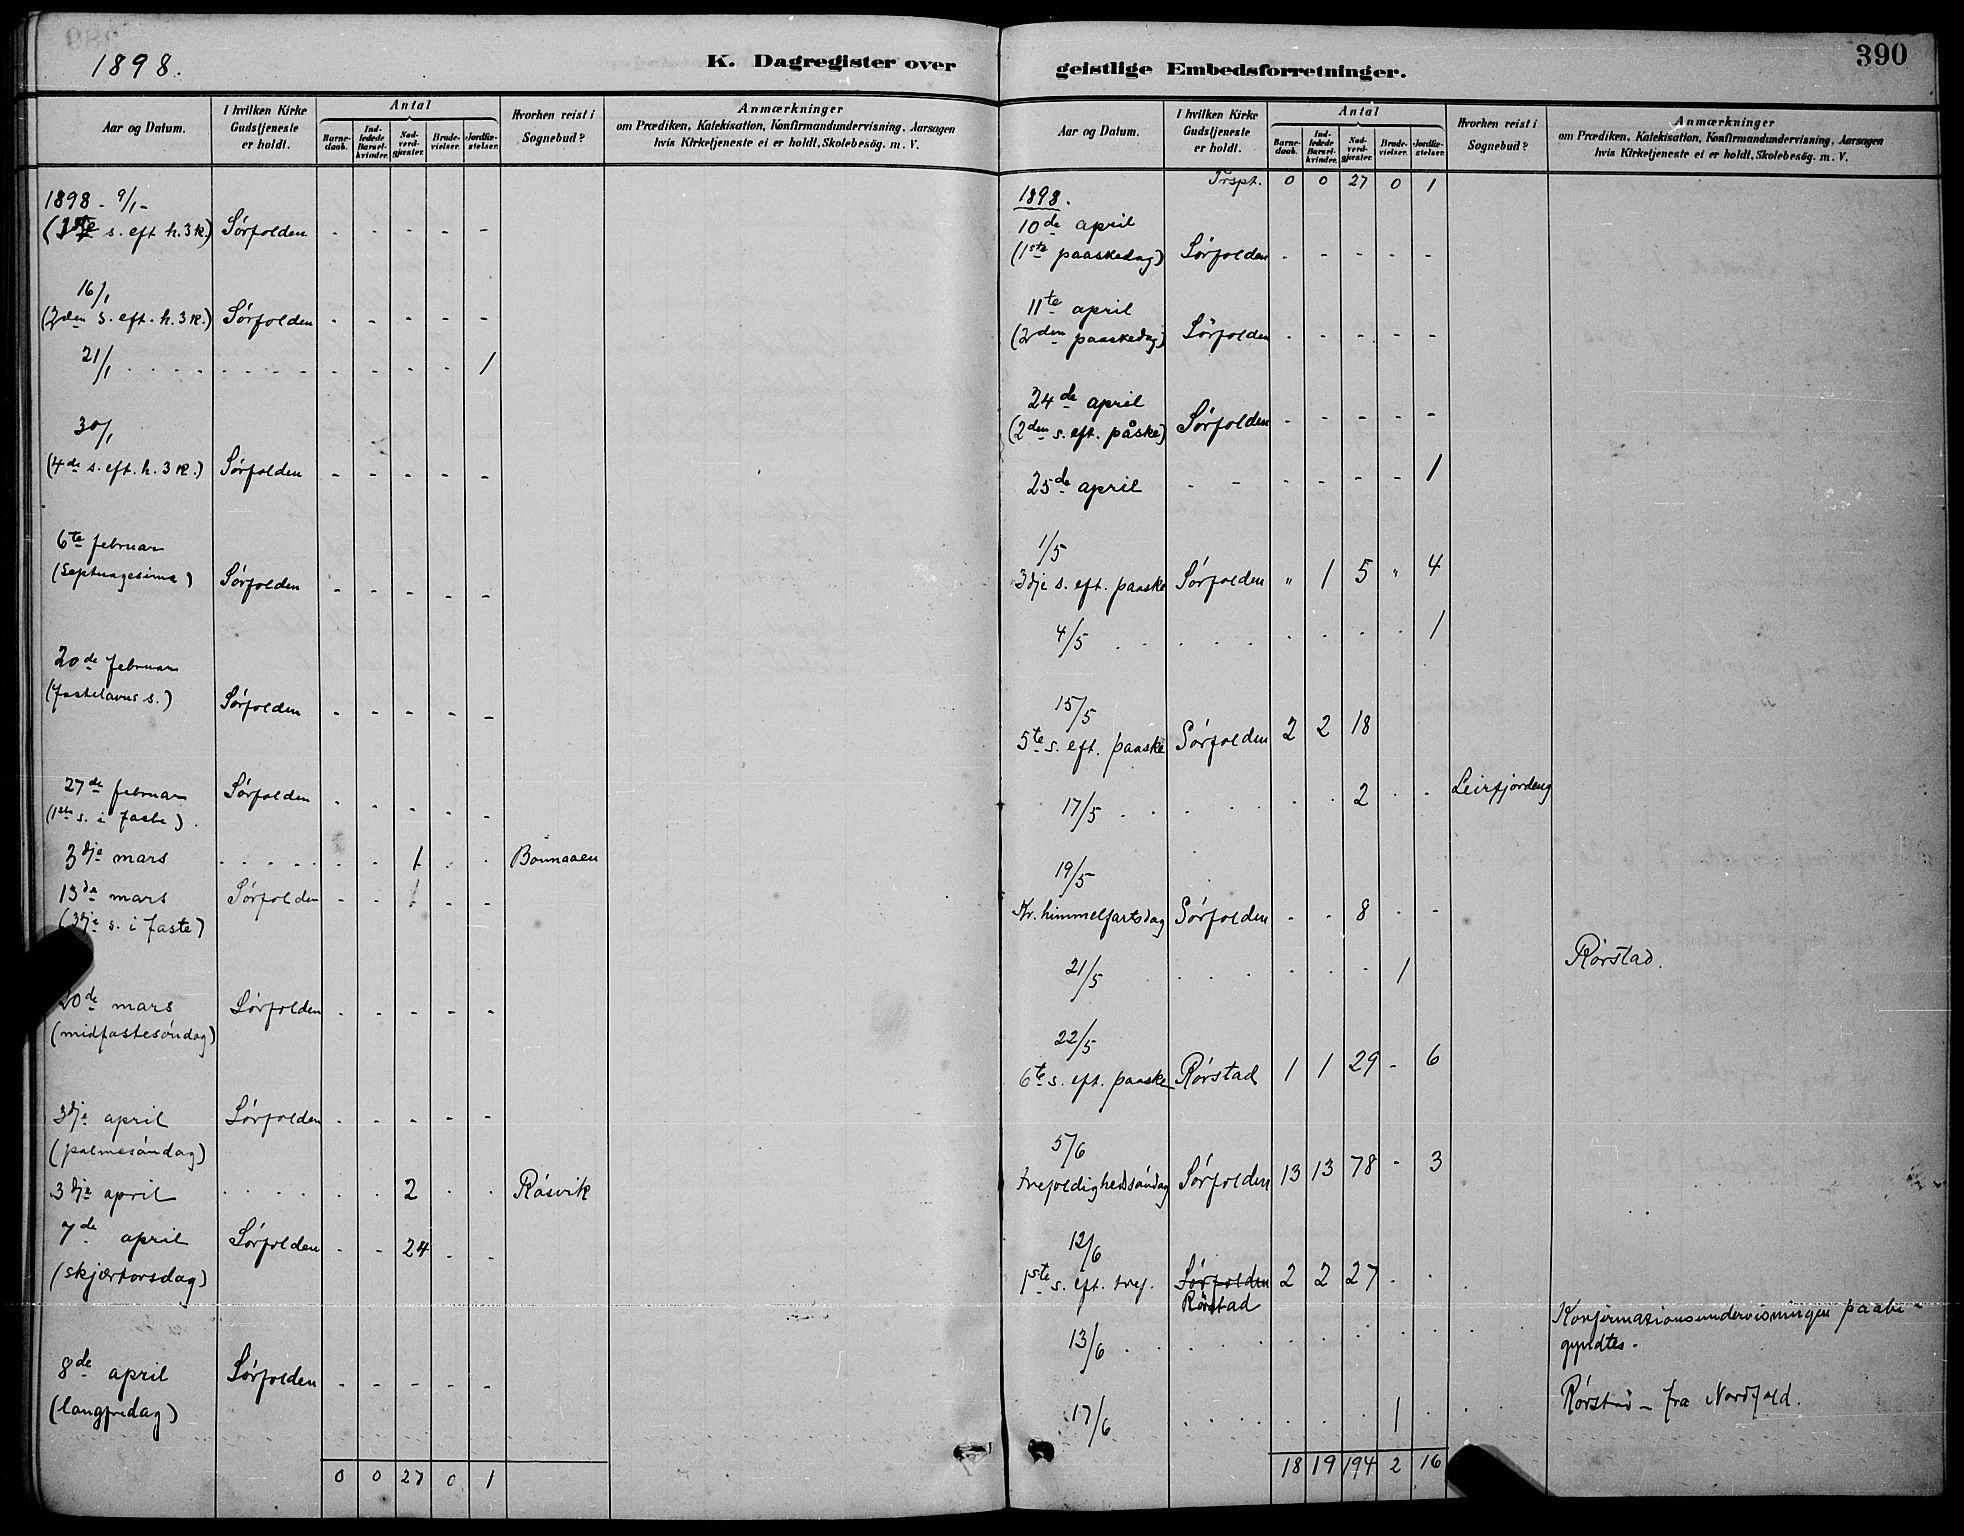 1898.
K. Dagregister over
Aar og Datum.
I hvilken Kirke Gudstjeneste er holdt.
Antal
Barne-daab.
Ind-ledede Barsel-kvinder.
Nad-verd-gjester.
Brude-vielser.
Jordfæ-stelser.
Hvorhen reist i Sognebud?
Anmærkninger
om Prædiken, Katekisation, Konfirmandundervisning, Aarsagen
hvis Kirketjeneste ei er holdt, Skolebesög. m. V.
1898 - 9/1 -
(1ste s. eft h. 3 k.) Sørfolden - - - - -
16/1
(2den s. eft. h. 3 k.) Sørfolden - - - - -
21/1 . . . . . . . . . . . . . 1
30/1
(4de s. eft. h. 3 k.) Sørfolden - - - - -
6te februar
(Septuagesima) Sørfolden - - - - -
20de februar
(fastelavns s.) Sørfolden - - - - -
27de februar Sørfolden - - - - -
(1ste s. i faste).
3dje mars . . . . . . . 1 . . Bonnaaen
13de mars Sørfolden - - 1 - -
(3dje s. i faste)
20de mars Sørfolden - - - - -
(midfastesøndag)
3dje april Sørfolden - - - - -
(palmesøndag)
3dje april . . . . . . 2 . . Røsvik
7de april Sørfolden - - 24 - -
(skjærtorsdag)
8de april Sørfolden - - - - -
(langfredag)
0 0 27 0 1
390
geistlige Embedsforretninger.
Aar og Datum.
I hvilken Kirke Gudstjeneste er holdt.
Antal
Barne-daab.
Ind-ledede Barsel-kvinder.
Nad-verd-gjester.
Brude-vielser.
Jordfæ-stelser.
Hvorhen reist i Sognebud?
Anmærkninger
om Prædiken, Katekisation, Konfirmandundervisning, Aarsagen
hvis Kirketjeneste ei er holdt, Skolebesög. m. V.
Trspt. 0 0 27 0 1
1898.
10de april
(1ste paaskedag) Sørfolden - - - - -
11te april
(2den paaskedag) Sørfolden - - - - -
24de april
(2den s. eft. påske) Sørfolden - - - - -
25de april - - - - - - 1
1/5
3dje s. eft. paaske Sørfolden " 1 5 " 4
4/5 . . . . . . . . 1
15/5
5te s. eft. paaske Sørfolden 2 2 18
17/5 . . . . . . 2 . . Leirfjorden
19/5
Kr. himmelfartsdag Sørfolden - - 8 - -
21/5 . . . . . . 1 Rørstad.
22/5
6te s. eft. paaske Rørstad 1 1 29 - 6
5/6
trefoldighedssøndag Sørfolden 13 13 78 - 3
12/6
1ste s. eft. tref. Sørfolden 2 2 27 . .
Rørstad
13/6 . . . . . . . . . Konfirmazionsundervisningen paabe-
gyndtes.
17/6 . . . . . . 1 . . Rørstad - fra Nordfold.
18 19 194 2 16